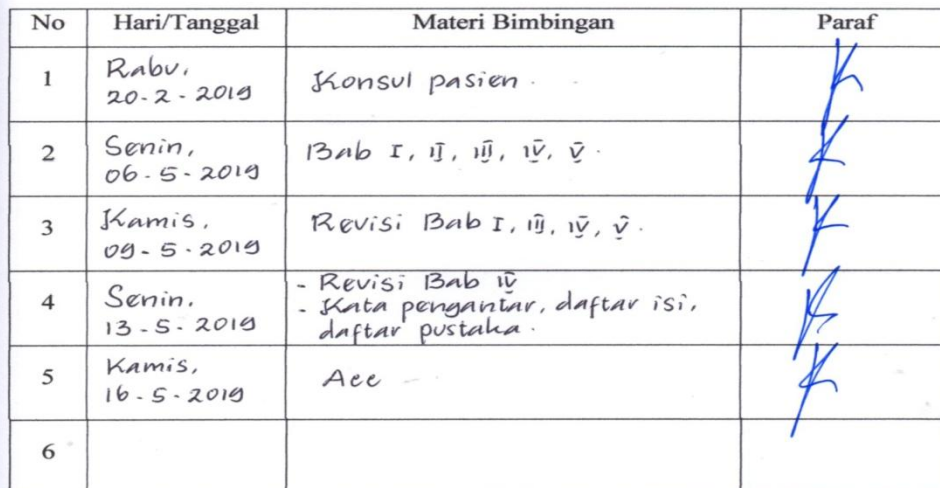 No Hari/Tanggal Materi Bimbingan Paraf
1 Rabu, 20-2-2019 Konsul pasien.
2 Senin, 06-5-2019 Bab I, II, III, IV, V.
3 Kamis, 09-5-2019 Revisi Bab I, III, IV, V.
4 Senin, 13-5-2019 - Revisi Bab IV
- Kata pengantar, daftar isi,
daftar pustaka.
5 Kamis, 16-5-2019 Acc
6